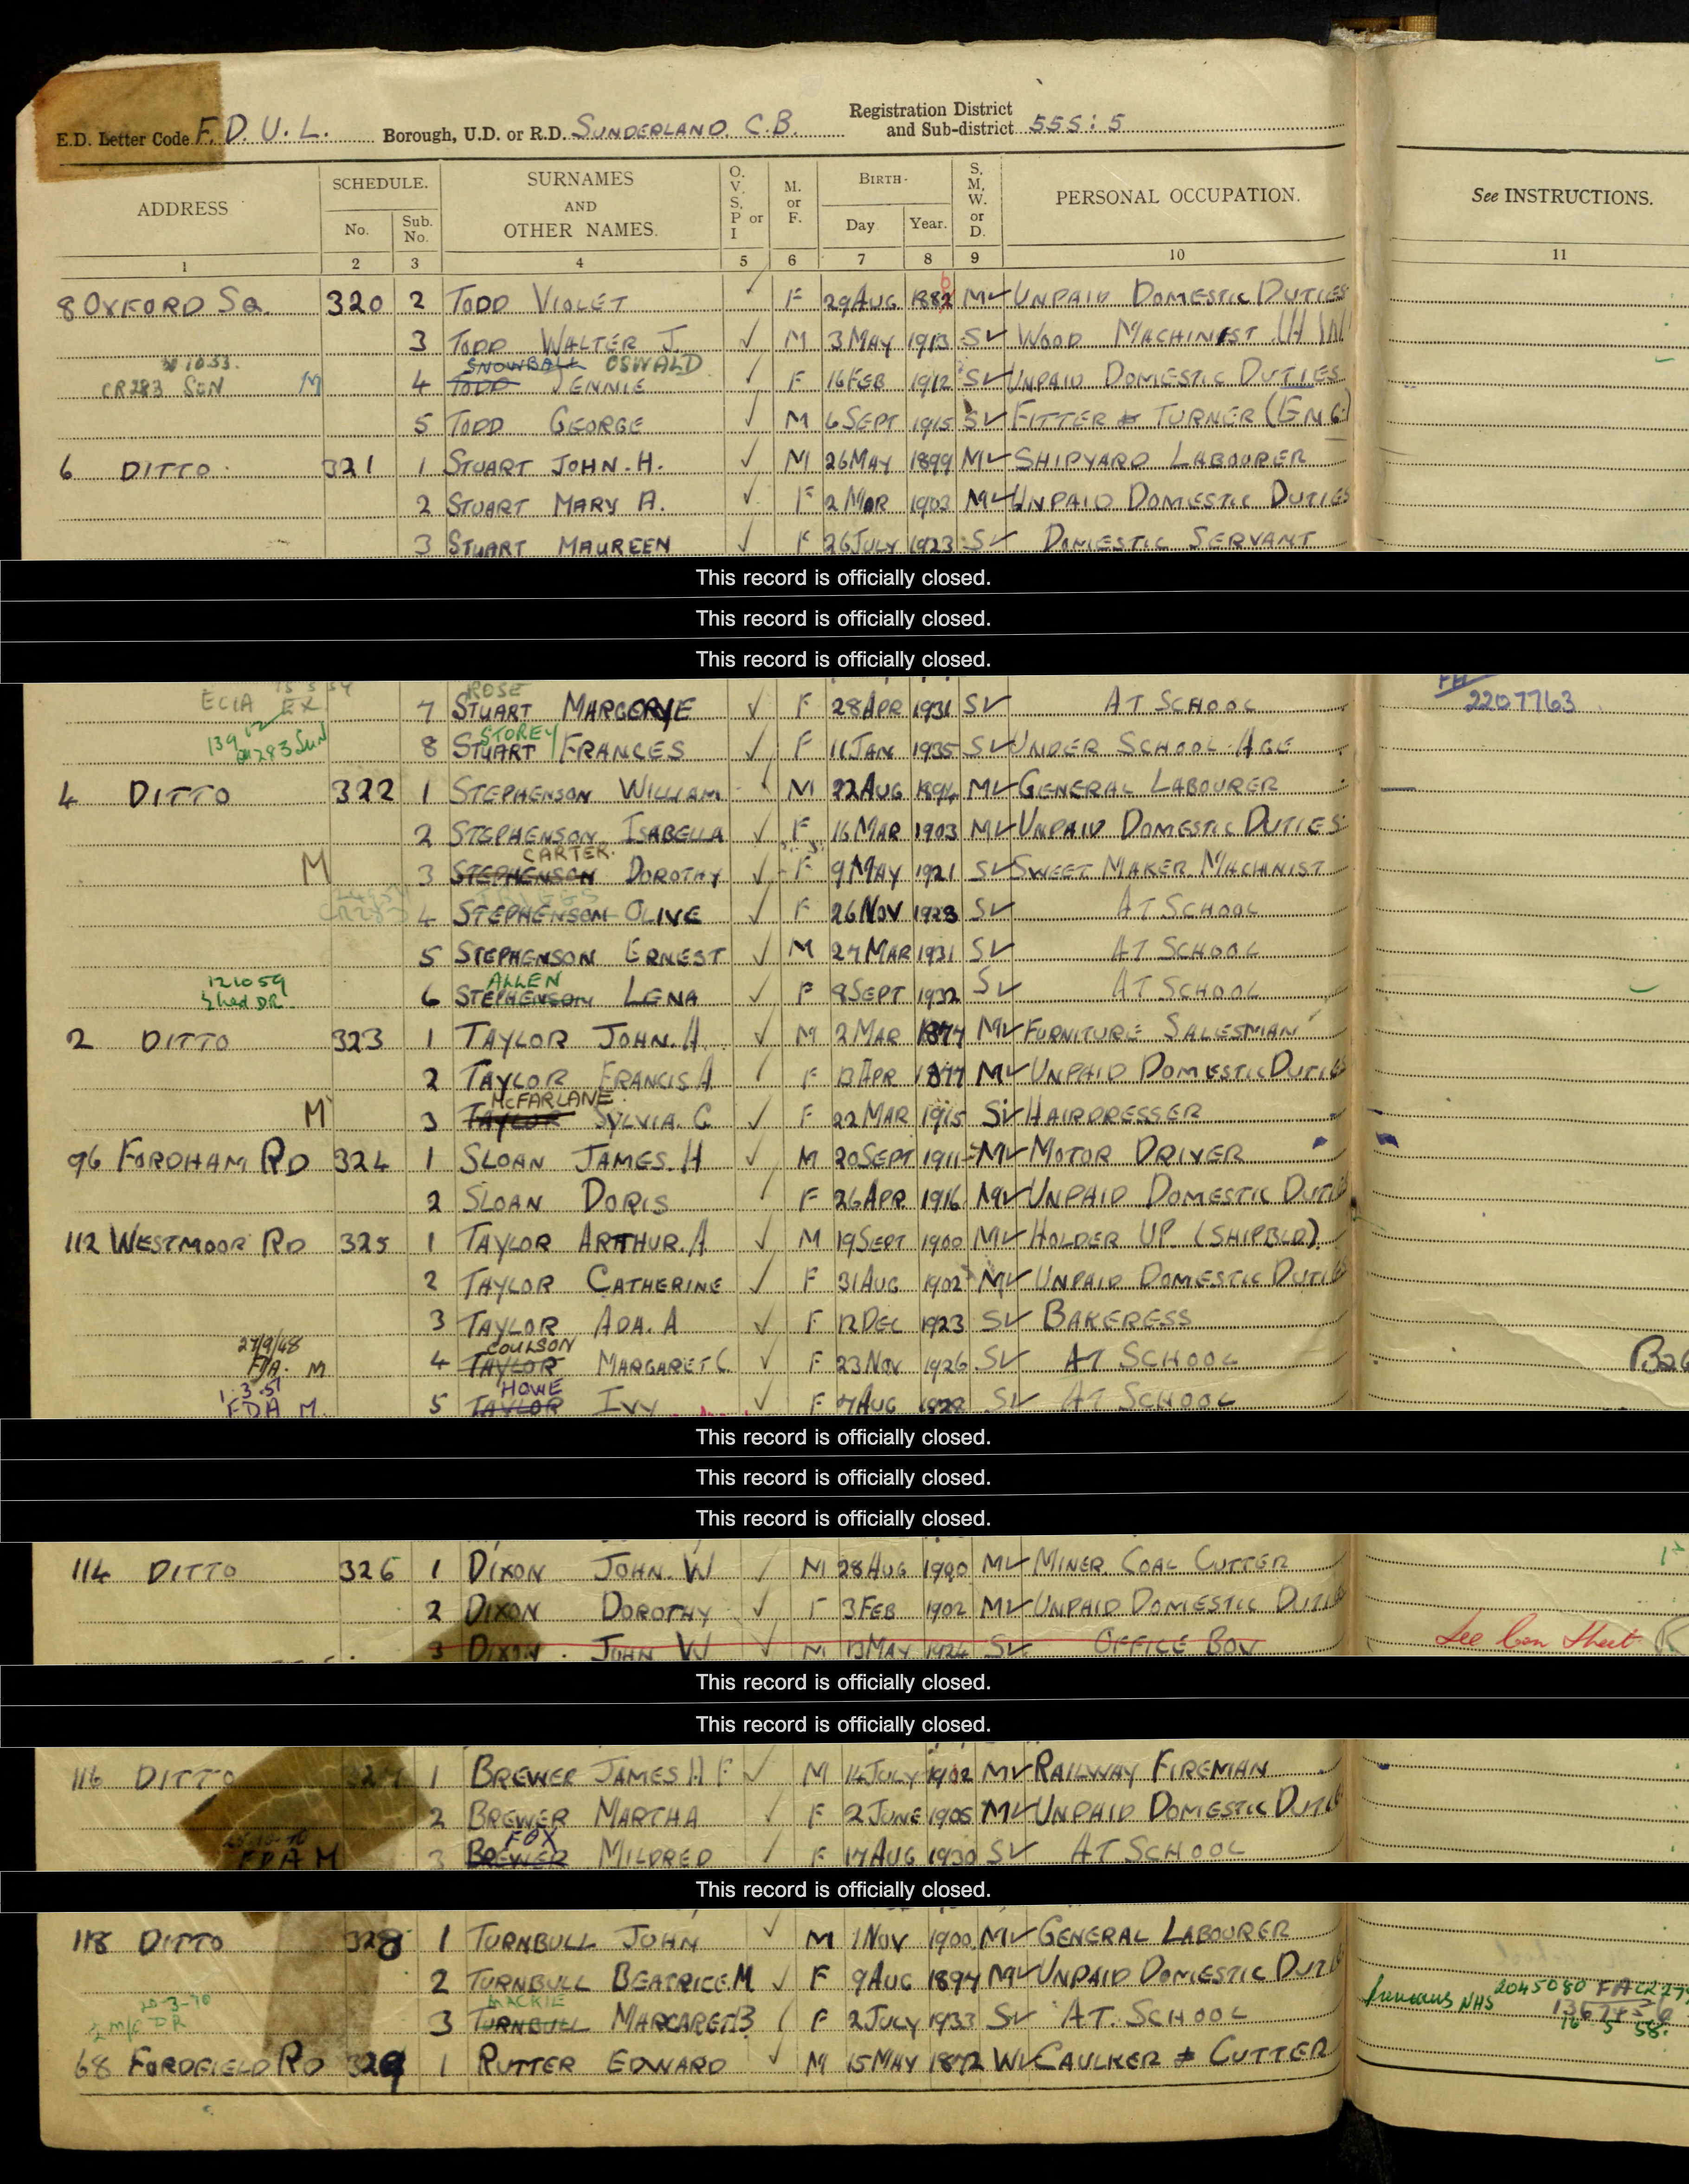 E.D. Letter Code F.D.U.L. Borough, U.D. or R.D. SUNDERLAND C.B. Registration District and Sub-district 555:5
ADDRESS SCHEDULE. No. Sub. No. SURNAMES AND OTHER NAMES. O. V. S. P or I M. or F. BIRTH- Day Year. S. M. W. or D. PERSONAL OCCUPATION. See INSTRUCTIONS.
1 2 3 4 5 6 7 8 9 10 11
8 OXFORD SQ. 320 2 TODD VIOLET ✓ F 29 AUG 1882 6 M ✓ UNPAID DOMESTIC DUTIES
3 TODD WALTER J. ✓ M 3 MAY 1913 S ✓ WOOD MACHINIST
SNOWBALL OSWALD
CR283 SUN M 4 TODD JENNIE ✓ F 16 FEB 1912 S ✓ UNPAID DOMESTIC DUTIES
5 TODD GEORGE ✓ M 6 SEPT 1915 S ✓ FITTER & TURNER (ENG)
6 DITTO 321 1 STUART JOHN.H. ✓ M 26 MAY 1899 M ✓ SHIPYARD LABOURER
2 STUART MARY A. ✓ F 2 MAR 1903 M ✓ UNPAID DOMESTIC DUTIES
3 STUART MAUREEN ✓ F 26 JULY 1923 S ✓ DOMESTIC SERVANT
This record is officially closed.
This record is officially closed.
This record is officially closed.
ROSE
ECIA EX 7 STUART MARGERYE ✓ F 28 APR 1931 S ✓ AT SCHOOL 2207763
STOREY
CR283 Sun 8 STUART FRANCES ✓ F 11 JAN 1935 S ✓ UNDER SCHOOL AGE
4 DITTO 322 1 STEPHENSON WILLIAM ✓ M 22 AUG 1894 M ✓ GENERAL LABOURER
2 STEPHENSON ISABELLA ✓ F 16 MAR 1903 M ✓ UNPAID DOMESTIC DUTIES
CARTER.
M 3 STEPHENSON DOROTHY ✓ F 9 MAY 1921 S ✓ SWEET MAKER MACHINIST
4 STEPHENSON OLIVE ✓ F 26 NOV 1928 S ✓ AT SCHOOL
5 STEPHENSON ERNEST ✓ M 27 MAR 1931 S ✓ AT SCHOOL
121059 ALLEN
DR 6 STEPHENSON LENA ✓ F 8 SEPT 1932 S ✓ AT SCHOOL
2 DITTO 323 1 TAYLOR JOHN.H. ✓ M 2 MAR 1877 M ✓ FURNITURE SALESMAN
2 TAYLOR FRANCIS A ✓ F 13 APR 1877 M ✓ UNPAID DOMESTIC DUTIES
McFARLANE
M 3 TAYLOR SYLVIA.C ✓ F 22 MAR 1915 S ✓ HAIRDRESSER
96 FORDHAM RD 324 1 SLOAN JAMES.H ✓ M 20 SEPT 1911 M ✓ MOTOR DRIVER
2 SLOAN DORIS ✓ F 26 APR 1916 M ✓ UNPAID DOMESTIC DUTIES
112 WESTMOOR RD 325 1 TAYLOR ARTHUR.A ✓ M 19 SEPT 1900 M ✓ HOLDER UP (SHIPBLD)
2 TAYLOR CATHERINE ✓ F 31 AUG 1902 M ✓ UNPAID DOMESTIC DUTIES
3 TAYLOR ADA.A ✓ F 12 DEC 1923 S ✓ BAKERESS
27/9/48 COULSON
FDA. M 4 TAYLOR MARGARET C. ✓ F 23 NOV 1926 S ✓ AT SCHOOL
1.3.51 HOWE
FDA M. 5 TAYLOR IVY ✓ F 7 AUG 1928 S ✓ AT SCHOOL
This record is officially closed.
This record is officially closed.
This record is officially closed.
114 DITTO 326 1 DIXON JOHN.W ✓ M 28 AUG 1900 M ✓ MINER COAL CUTTER
2 DIXON DOROTHY ✓ F 3 FEB 1902 M ✓ UNPAID DOMESTIC DUTIES
3 DIXON JOHN W ✓ M 13 MAY 1924 S ✓ OFFICE BOY See Con Sheet
This record is officially closed.
This record is officially closed.
116 DITTO 327 1 BREWER JAMES H F ✓ M 14 JULY 1902 M ✓ RAILWAY FIREMAN
2 BREWER MARTHA ✓ F 2 JUNE 1905 M ✓ UNPAID DOMESTIC DUTIES
FOX
FDA M 3 BREWER MILDRED ✓ F 17 AUG 1930 S ✓ AT SCHOOL
This record is officially closed.
118 DITTO 328 1 TURNBULL JOHN ✓ M 1 NOV 1900 M ✓ GENERAL LABOURER
2 TURNBULL BEATRICE.M ✓ F 9 AUG 1894 M ✓ UNPAID DOMESTIC DUTIES
20-3-70 MACKIE 2045080
DR 3 TURNBULL MARGARET B ✓ F 2 JULY 1933 S ✓ AT SCHOOL NHS 16 5 58.
68 FORDFIELD RD 329 1 RUTTER EDWARD ✓ M 15 MAY 1872 W ✓ CAULKER & CUTTER